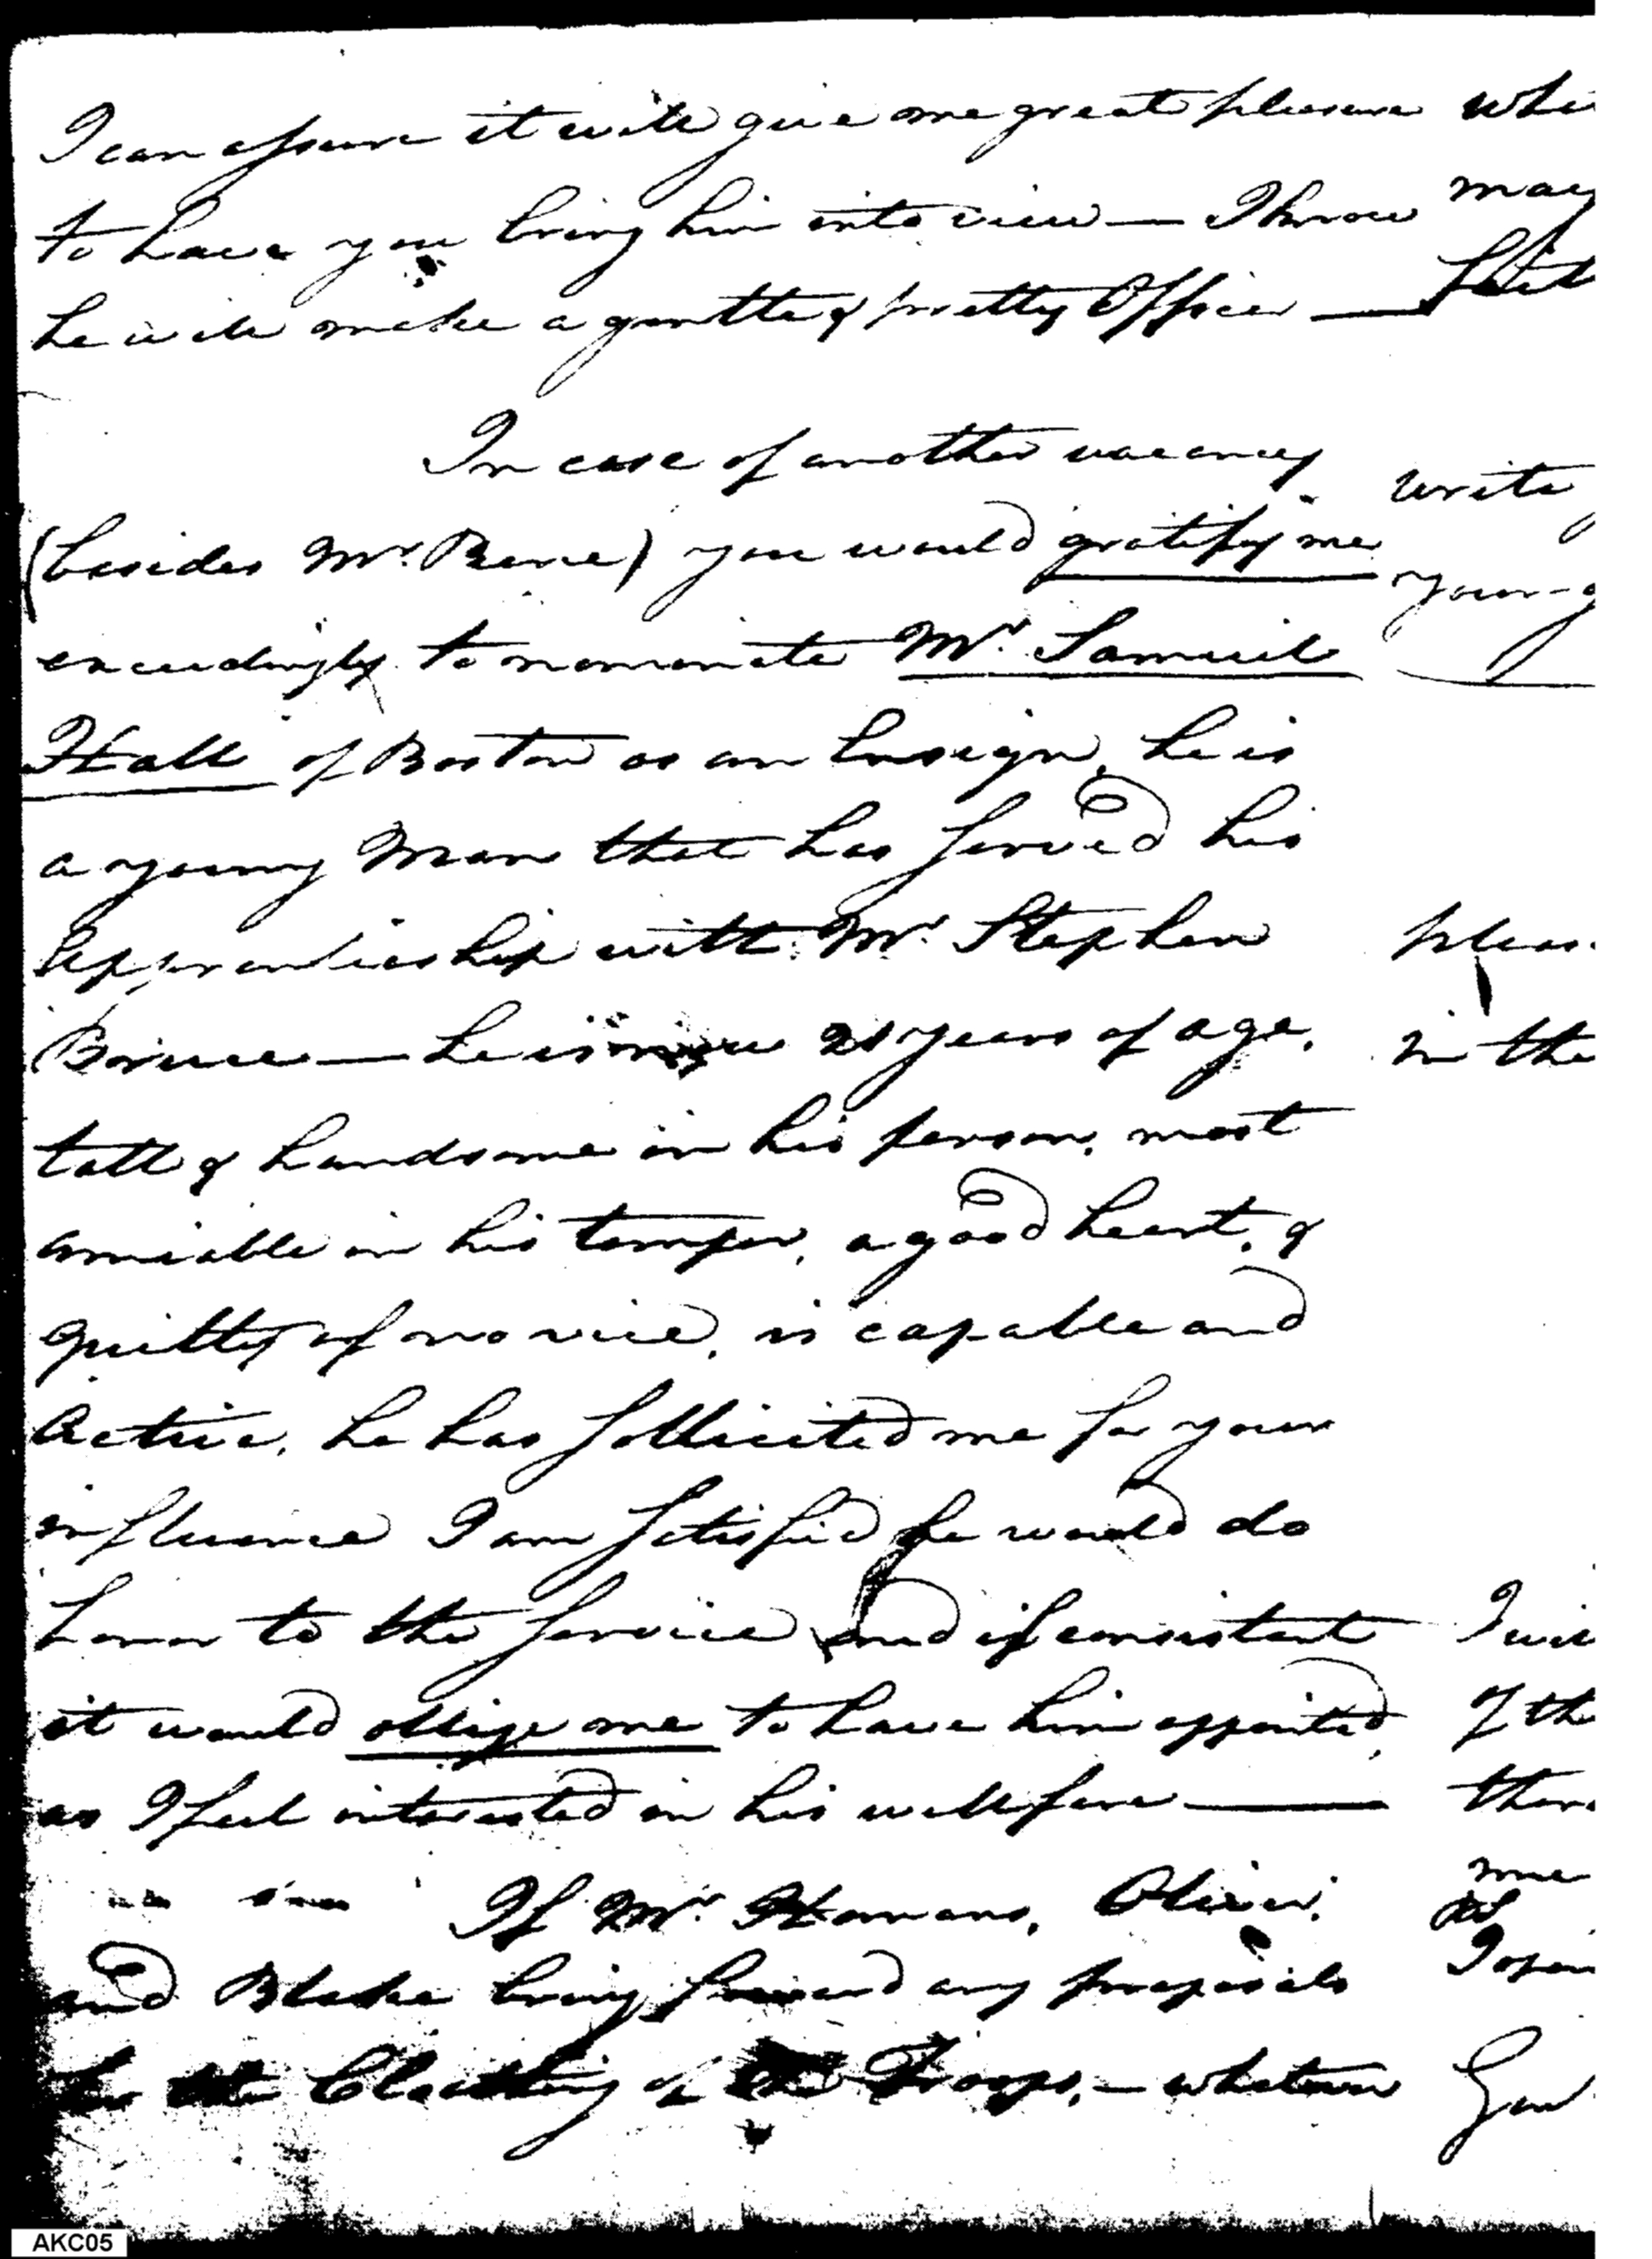 I can assure it will give me great pleasure
to have you bring him into view — I know
he will make a gentle & pretty Officer —
In case of another vacancy
(besides Mr. ) you would gratify me
exceedingly to nominate Mr. Samuel
Hall of Boston as an Ensign, he is
a young Man that has served his
apprenticeship with Mr. Stephen
Bruce — he is now 21 years of age,
tall & handsome in his person, most
amiable in his temper, a good heart, &
guilty of no vice, is capable and
Active, he has sollicited me for your
influence I am satisfied he would do
honor to the service and if consistent
it would oblige me to have him appointed,
as I feel interested in his wellfare —
If Mr. , Oliver,
and Blake bring forward any proposals
for the Cloathing of the Troops, — whatever
whi
may
write
your
pleas
in the
I wi
of th
ther
me
Gen
AKC05